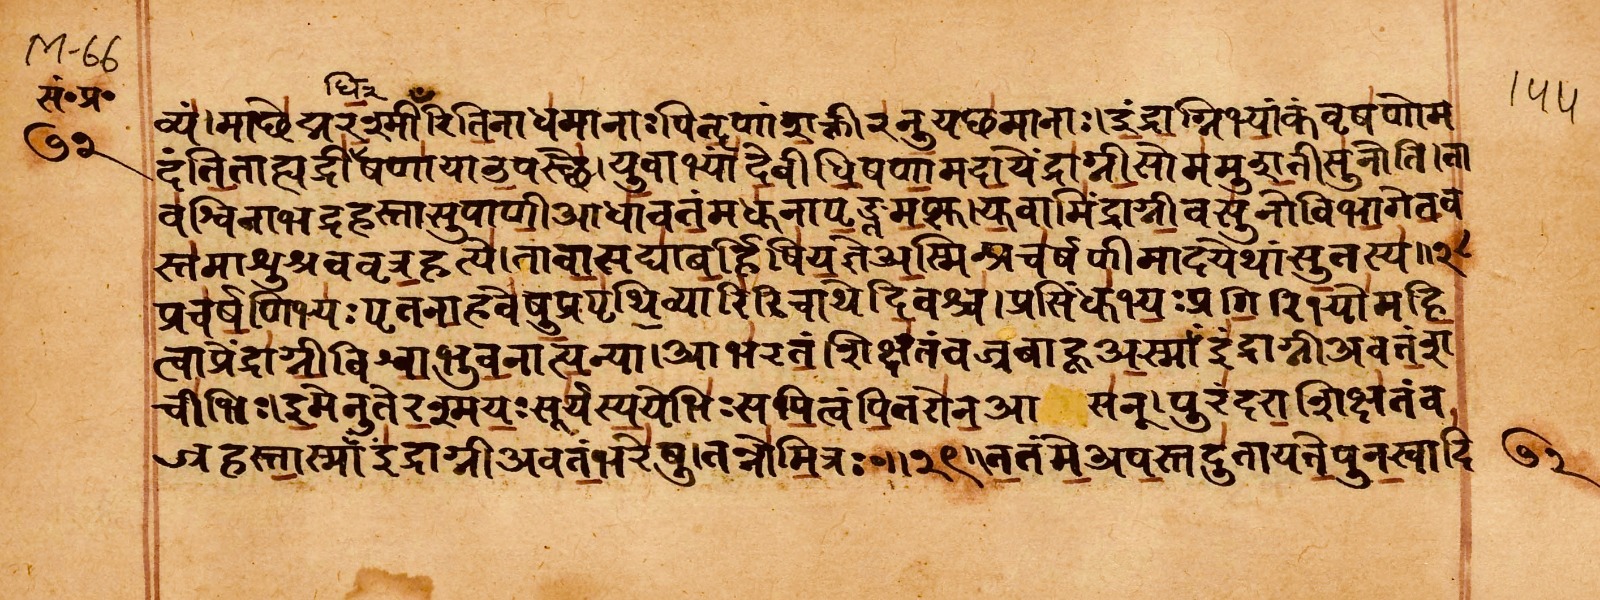 M-66
सं॰प्र॰
धि२
१५५
७२
व्यं।माछेद्मरश्मीँरितिनाधमानाःपितॄणांशक्तीरनुयछमानाः।इंद्राग्निभ्यांकंवृषणोम
दंतिताह्यद्रीधिषणायाउपस्थे।युवाभ्यांदेवीधिषणामदायेंद्राग्नीसोममुशतीसुनोति।ता
वश्विनाभद्रहस्तासुपाणीआधावतंमधुनापृङ्क्तमप्सु।युवामिंद्राग्नीवसुनोविभागेतव
स्तमाशुश्रववृत्रहत्ये।तावासद्याबर्हिषियज्ञेअस्मिन्प्रचर्षणीमादयेथांसुतस्य॥२८
प्रचर्षणिभ्यःपृतनाहवेषुप्रपृथिव्यारिरिचाथेदिवश्च।प्रसिंधुभ्यःप्रगिरिभ्योमहि
त्वाप्रेंद्राग्नीविश्वाभुवनात्यन्या।आभरतंशिक्षतंवज्रबाहूअस्माँइंद्राग्नीअवतंश
चीभिः।इमेनुतेरश्मयःसूर्यस्ययेभिःसपित्वंपितरोनआ सन्।पुरंदराशिक्षतंव
ज्रहस्तास्माँइंद्राग्नीअवतंभरेषु।तन्नोमित्रः॰॥२९॥ततंमेअपस्तदुतायतेपुनस्वादि
७२